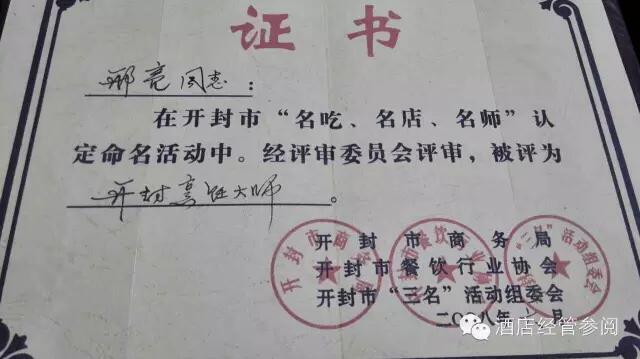 证书
邴亮同志：
在开封市“名吃、名店、名师”认
定命名活动中。经评审委员会评审，被评为
开封烹饪大师。
开封市商务局
开封市餐饮行业协会
开封市“三名”活动组委会
二〇〇八年 月
酒店经管参阅